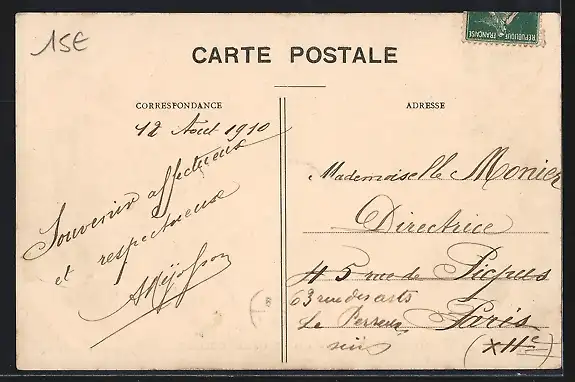 15E
RÉPUBLIQUE FRANÇAISE
CARTE POSTALE
CORRESPONDANCE
ADRESSE
12 Août 1910
Souvenir affectueux
et respectueux
Mademoiselle Monier
Directrice
45 rue de Picpus
63 rue des arts
Le Perreux Paris
XIIe